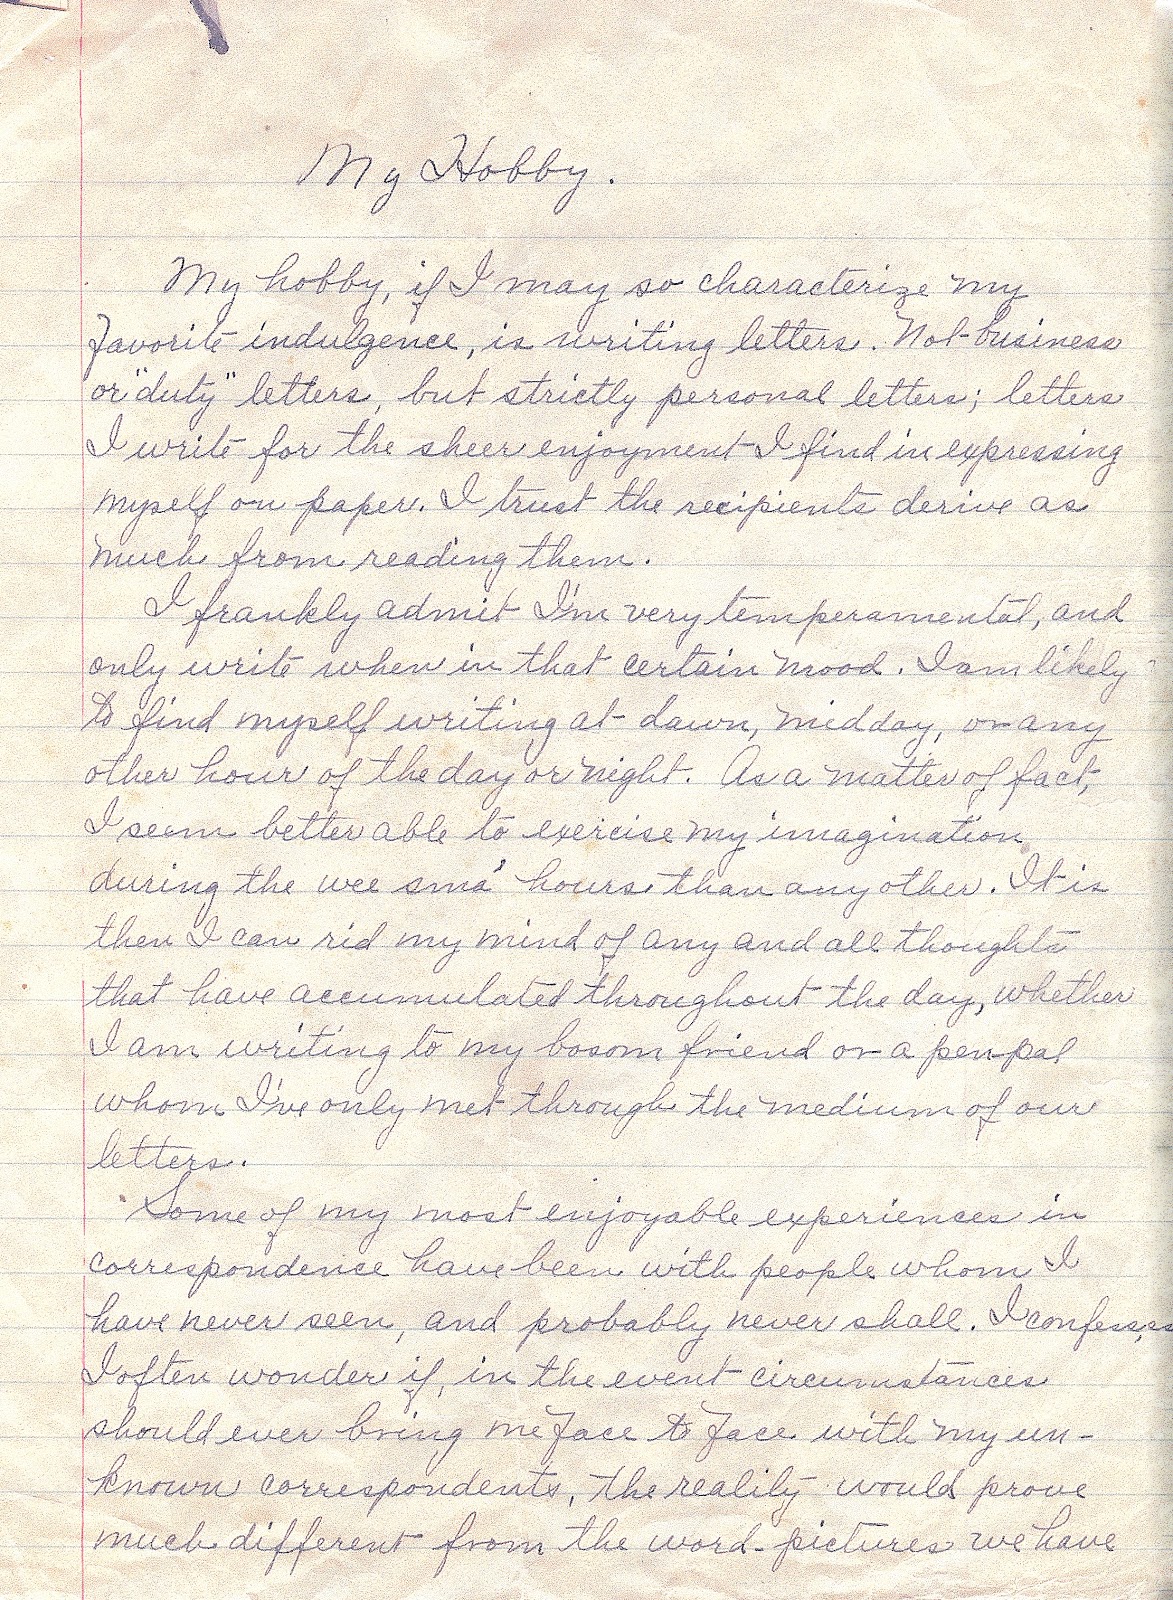 My Hobby.
My hobby, if I may so characterize my
favorite indulgence, is writing letters. Not business
or "duty" letters, but strictly personal letters; letters
I write for the sheer enjoyment I find in expressing
myself on paper. I trust the recipients derive as
much from reading them.
I frankly admit I'm very temperamental, and
only write when in that certain mood. I am likely
to find myself writing at dawn, midday, or any
other hour of the day or night. As a matter of fact,
I seem better able to exercise my imagination
during the wee sma' hours than any other. It is
then I can rid my mind of any and all thoughts
that have accumulated throughout the day, whether
I am writing to my bosom friend or a pen-pal
whom I've only met through the medium of our
letters.
Some of my most enjoyable experiences in
correspondence have been with people whom I
have never seen, and probably never shall. I confess,
I often wonder if, in the event circumstances
should ever bring me face to face with my un-
known correspondents, the reality would prove
much different from the word-pictures we have